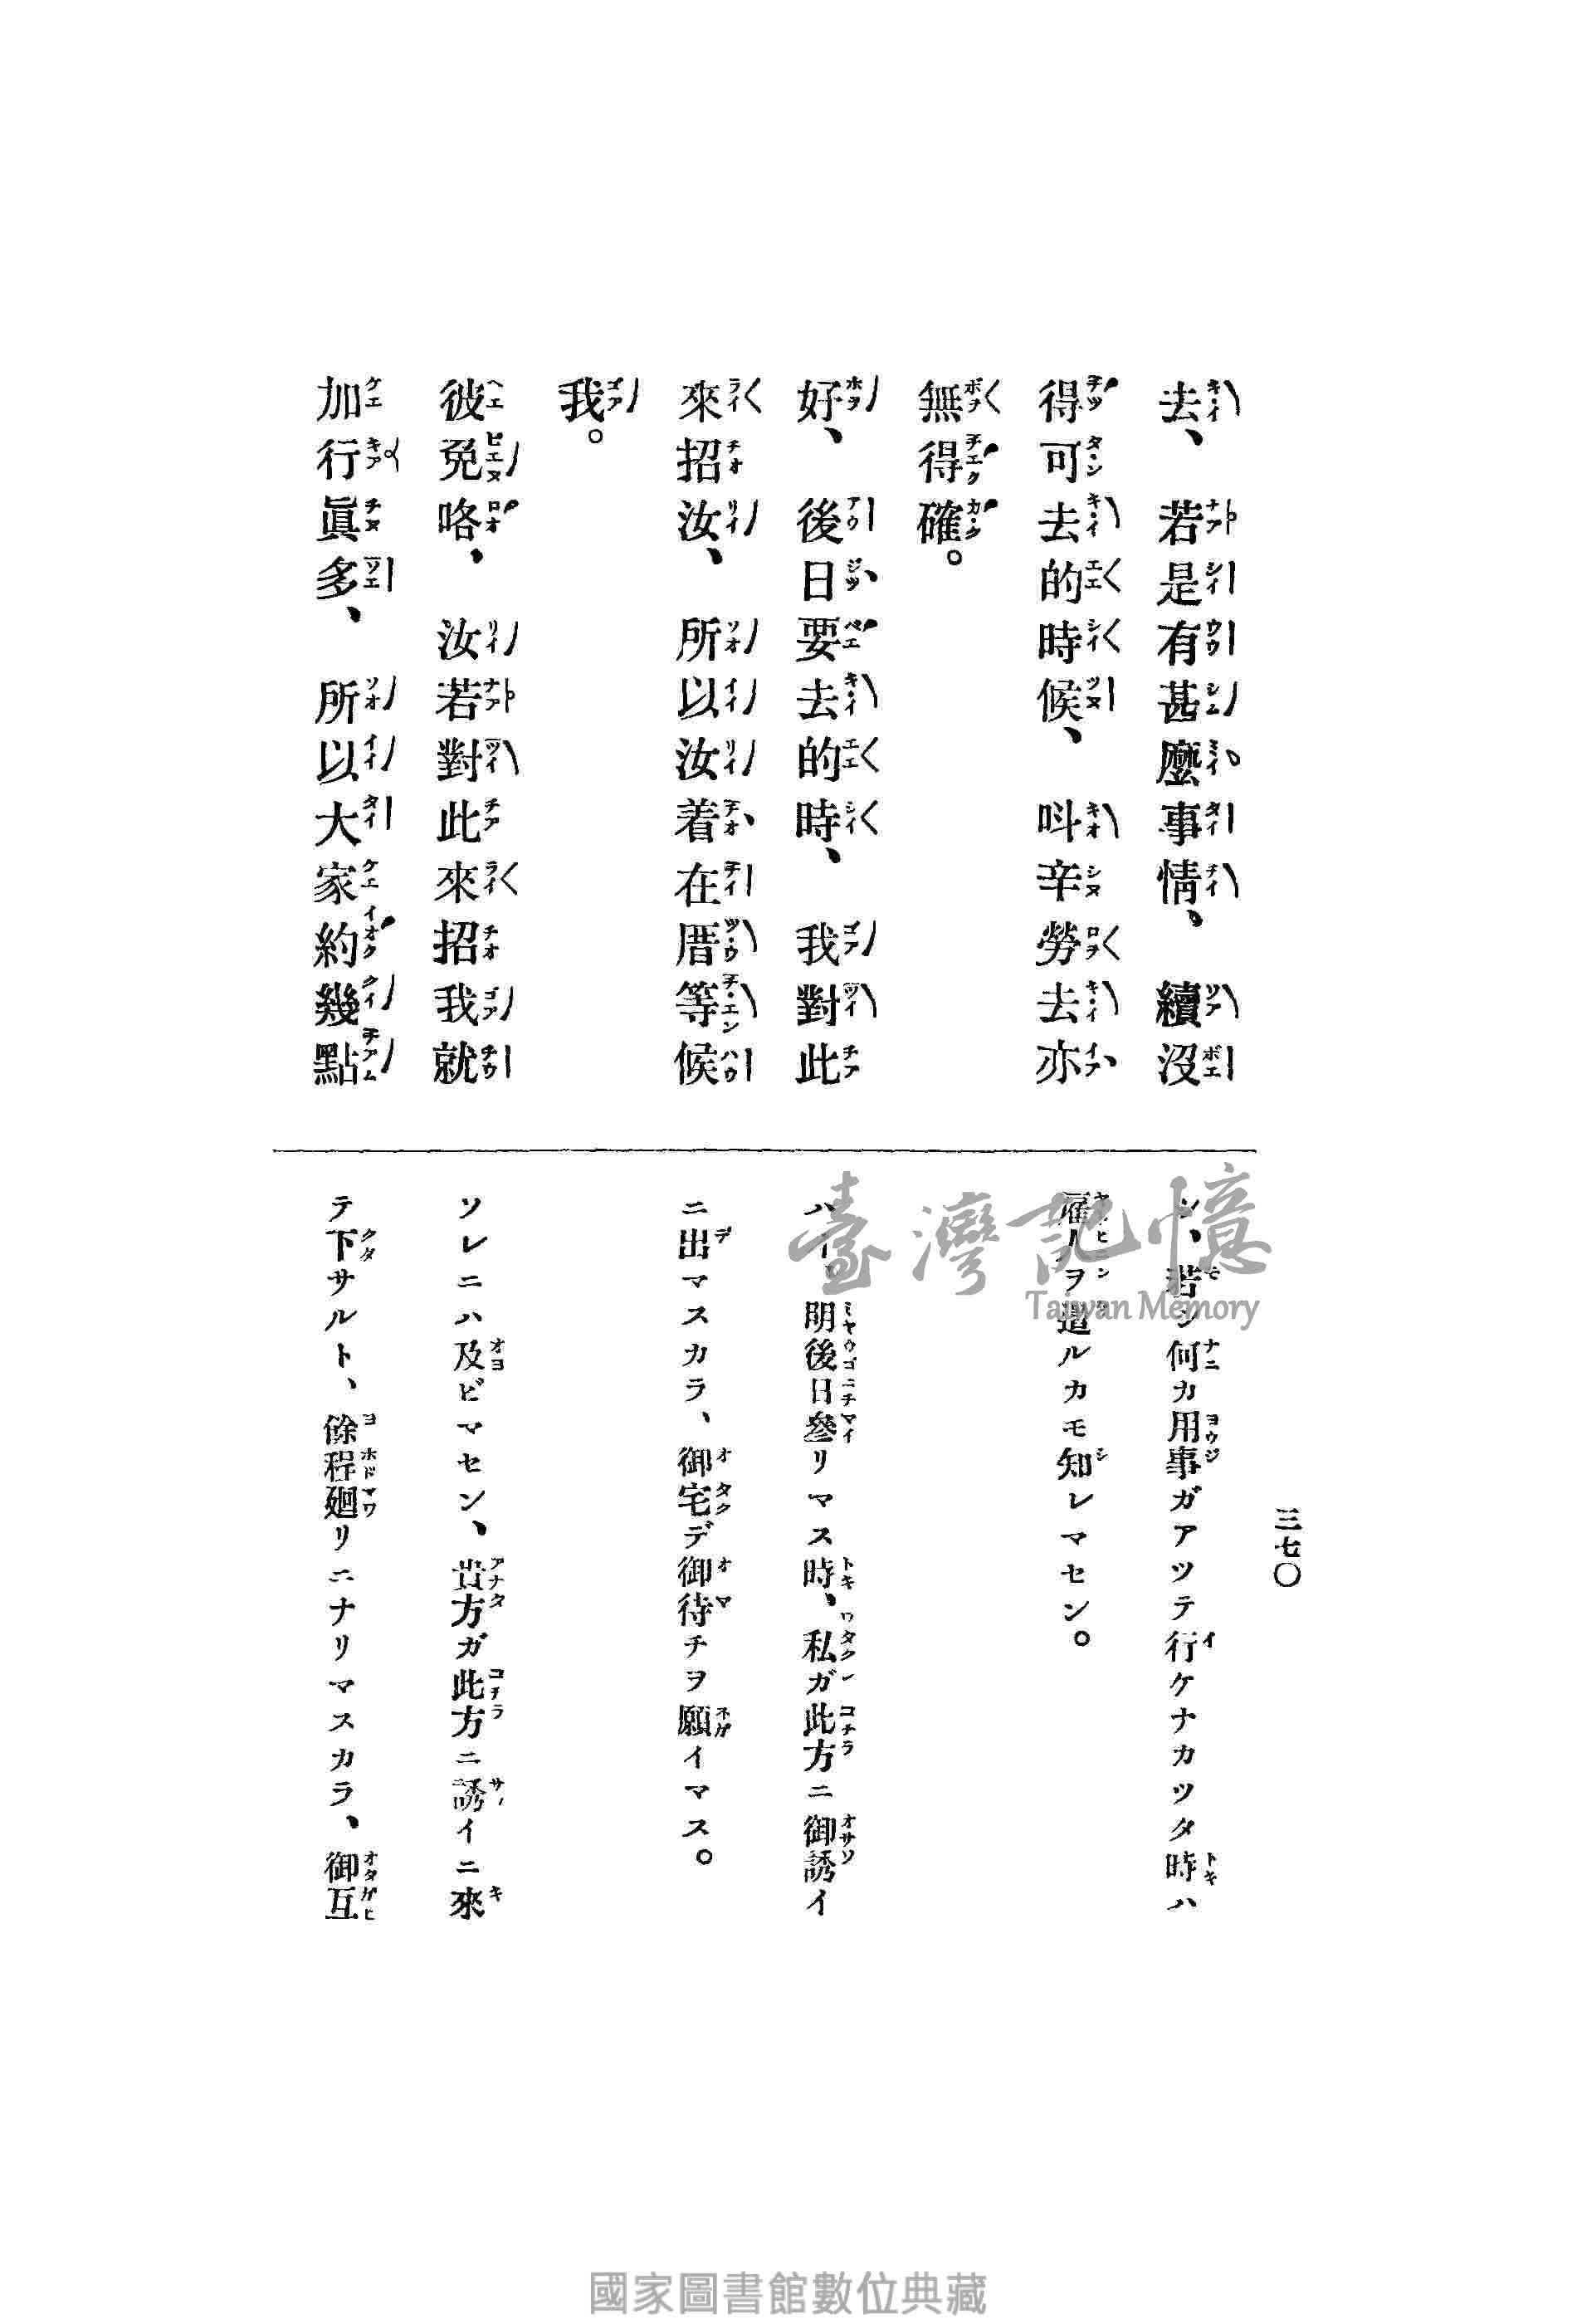 三七〇
去、若是有甚麼事情、續沒
得可去的時候、呌辛勞去亦
無得確。
好、後日、要去的時、我對此
來招汝、所以汝着在厝等候
我。
彼免咯、汝若對此來招我就
加行眞多、所以大家約幾點
シ、若シ何カ用事ガアツテ行ケナカツタ時ハ
雇人ヲ遣ルカモ知レマセン。
ハイ、明後日參リマス時、私ガ此方ニ御誘イ
ニ出マスカラ、御宅デ御待チヲ願イマス。
ソレニハ及ビマセン、貴方ガ此方ニ誘イニ來
テ下サルト、餘程廻リニナリマスカラ、御互
臺灣記憶
Taiwan Memory
國家圖書館數位典藏